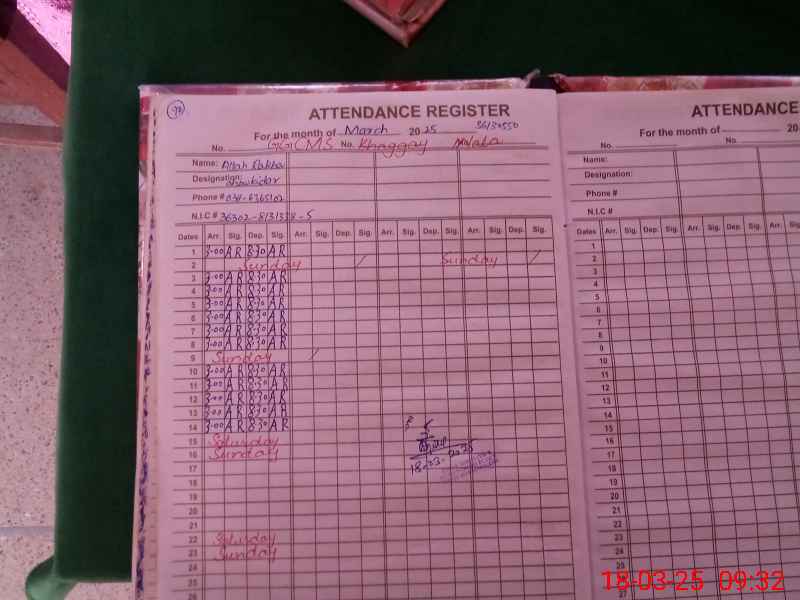 ATTENDANCE REGISTER
For the month of March 2025
No. GGCMS No. Khaggay Wala
Name: Allah Rakha
Designation: Chowkidar
Phone #
N.I.C #
Dates Arr. Sig. Dep. Sig. Arr. Sig. Dep. Sig. Arr. Sig. Dep. Sig. Arr. Sig. Dep. Sig.
1 3:00 AR 8:30 AR
2 Sunday Sunday
3 3:00 AR 8:30 AR
4 3:00 AR 8:30 AR
5 3:00 AR 8:30 AR
6 3:00 AR 8:30 AR
7 3:00 AR 8:30 AR
8 3:00 AR 8:30 AR
9 Sunday
10 3:00 AR 8:30 AR
11 3:00 AR 8:30 AR
12 3:00 AR 8:30 AR
13 3:00 AR 8:30 AR
14 3:00 AR 8:30 AR
15 Saturday
16 Sunday
17
18
19
20
21
22 Saturday
23 Sunday
24
25
26
18-03-2025
ATTENDANCE
For the month of 20
No. No.
Name:
Designation:
Phone #
N.I.C #
Dates Arr. Sig. Dep. Sig. Arr. Sig. Dep. Sig. Arr. Sig.
1
2
3
4
5
6
7
8
9
10
11
12
13
14
15
16
17
18
19
20
21
22
23
24
25
18-03-25 09:32